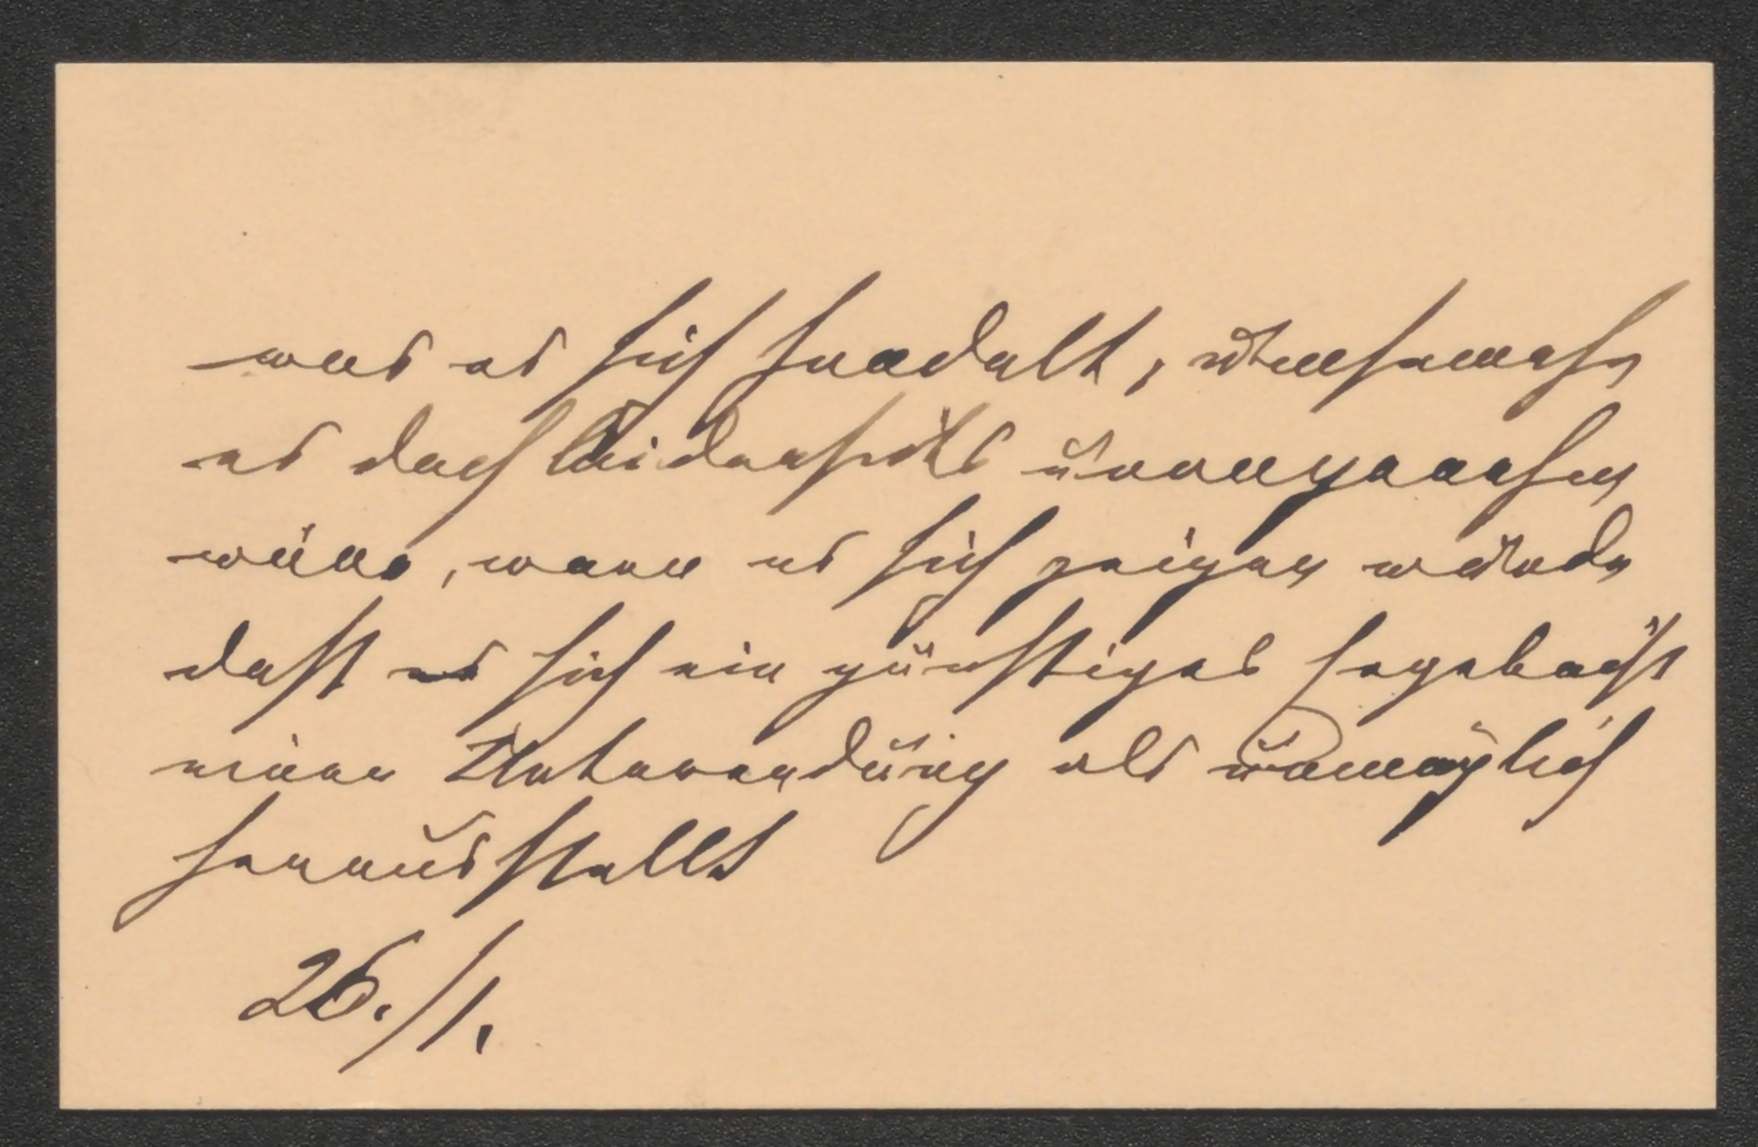 was es sich handelt, umsomehr
es doch beiderseits unangenehm
wäre, wenn es sich zeigen würde
daß es sich ein günstiges
einer Unterredung als unmöglich
herausstellt
26./1.